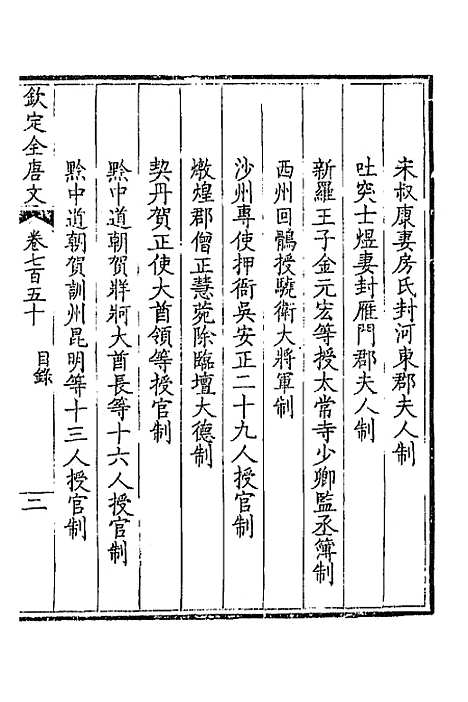 宋叔康妻房氏封河東郡夫人制
吐突士煜妻封雁門郡夫人制
新羅王子金元宏等授太常寺少卿監丞簿制
西州回鶻授驍衛大將軍制
沙州專使押衙吳安正二十九人授官制
燉煌郡僧正慧菀除臨壇大德制
契丹賀正使大首領等授官制
黔中道朝賀牂牁大酋長等十六人授官制
黔中道朝賀訓州昆明等十三人授官制
欽定全唐文 卷七百五十 目錄 二